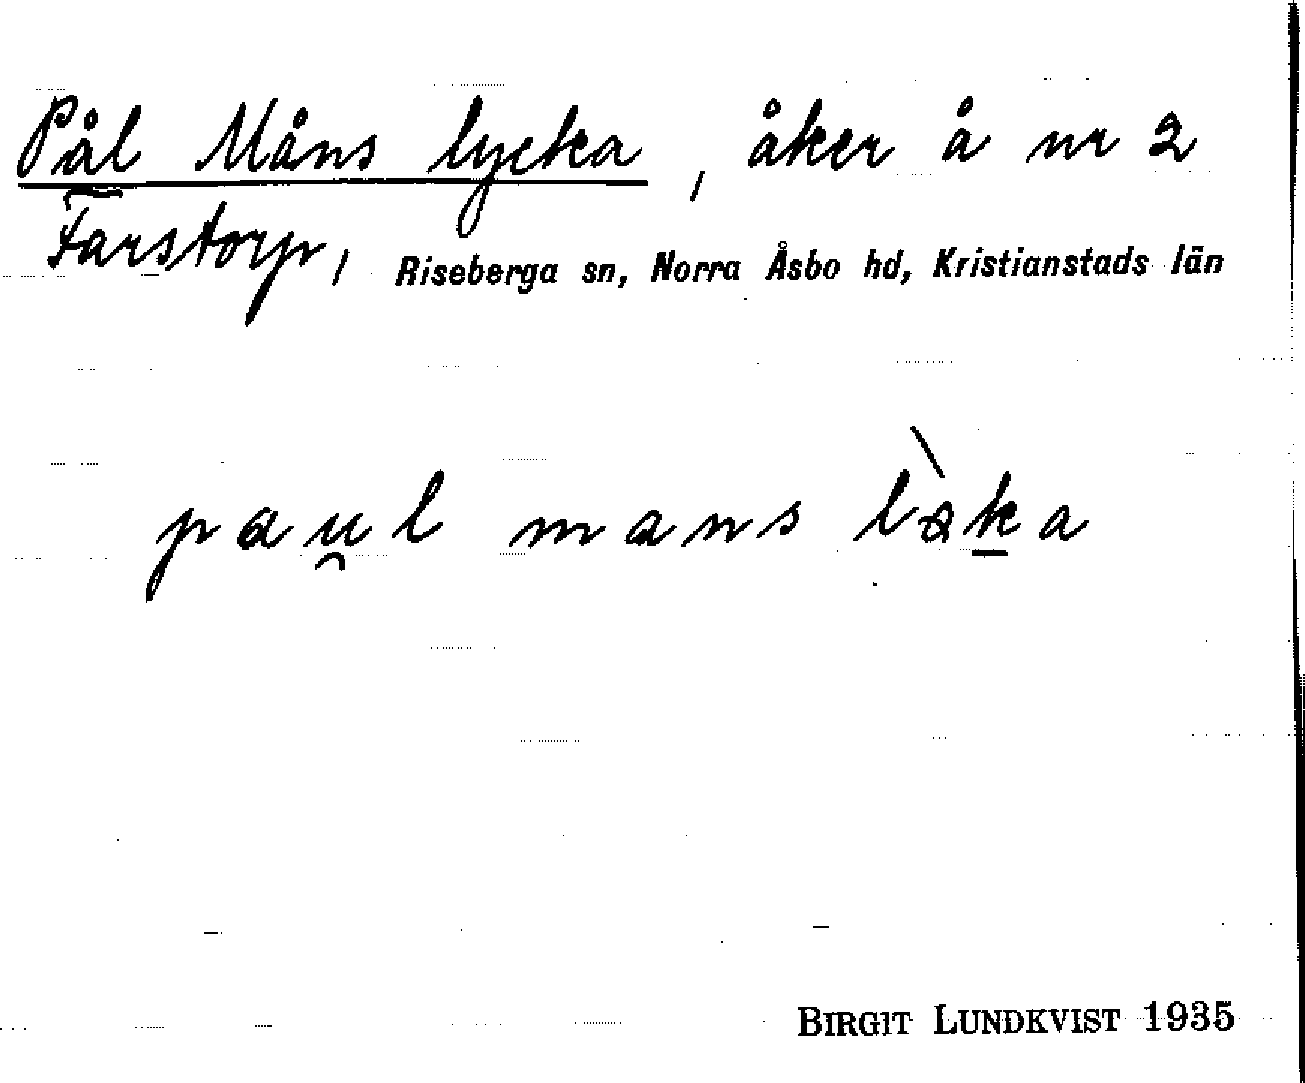 Pål Måns lycka, åker å nr 2
Farstorp, Riseberga sn, Norra Åsbo hd, Kristianstads län
pau̯l mans lə̀ḵa
BIRGIT LUNDKVIST 1935